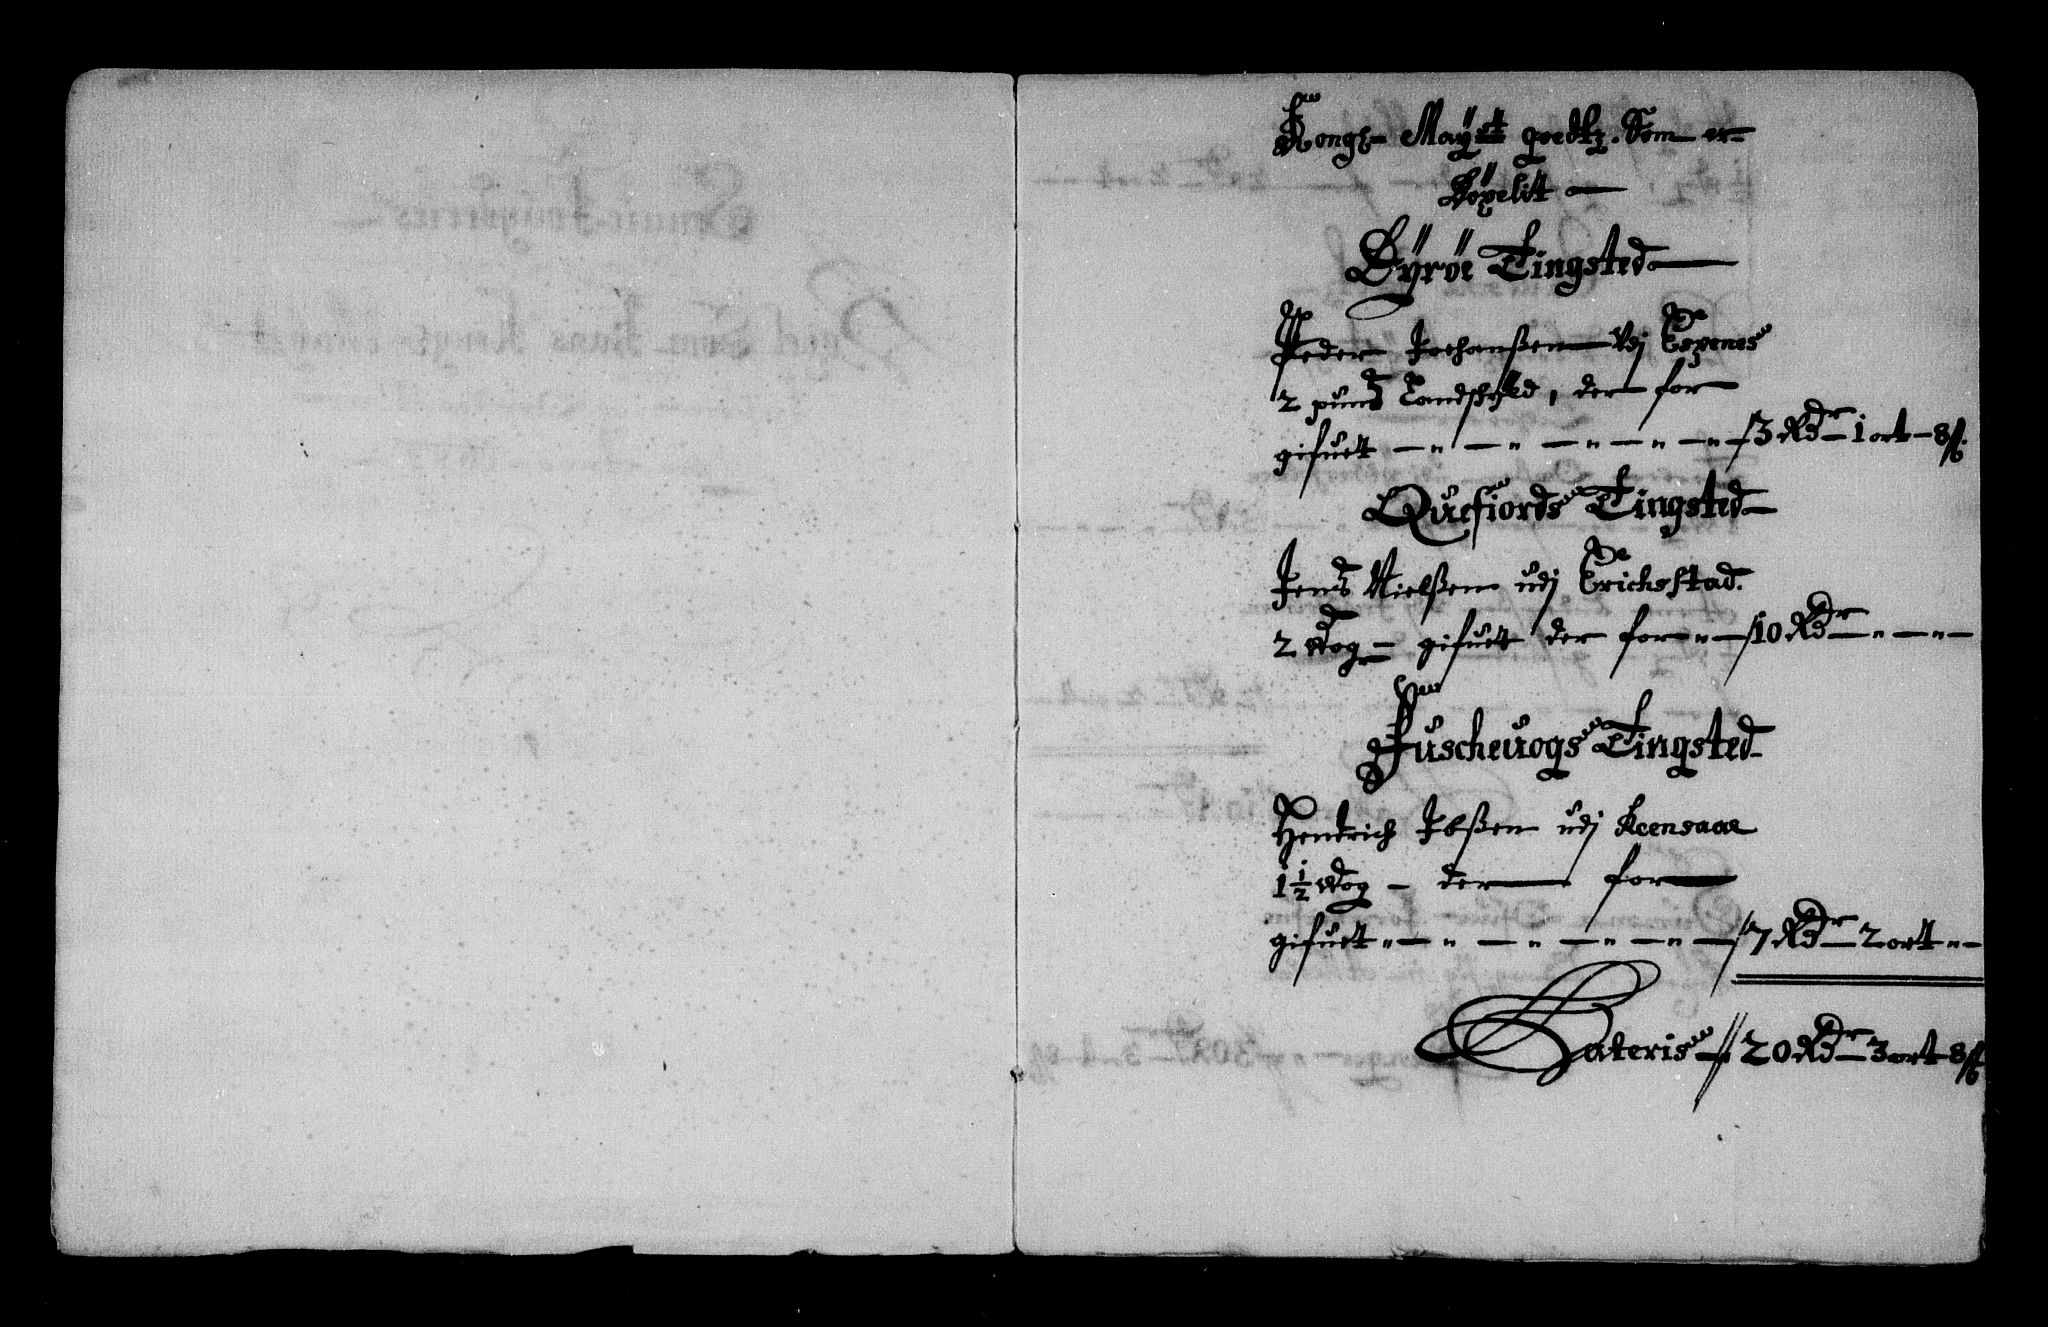 Kongl- Maÿtt goedtz. Som er
Böxelitt
Dÿröe Tingsted
Peder Joehanßen Udj Espenes
2 pund Landschÿld, der for
gifuet 3 Rdr 1 ort 8 ß.
Quefiords Tingsted
Jens Nielßen udj Erichsstad.
2 Wog gifuet der for 10 Rdr
Fuscheuogs Tingsted
Hendrich Ibßen udj
1½ Wog der for
gifuet 7 Rdr 2 ort
Lateris 20 Rdr 3 ort 8 ß